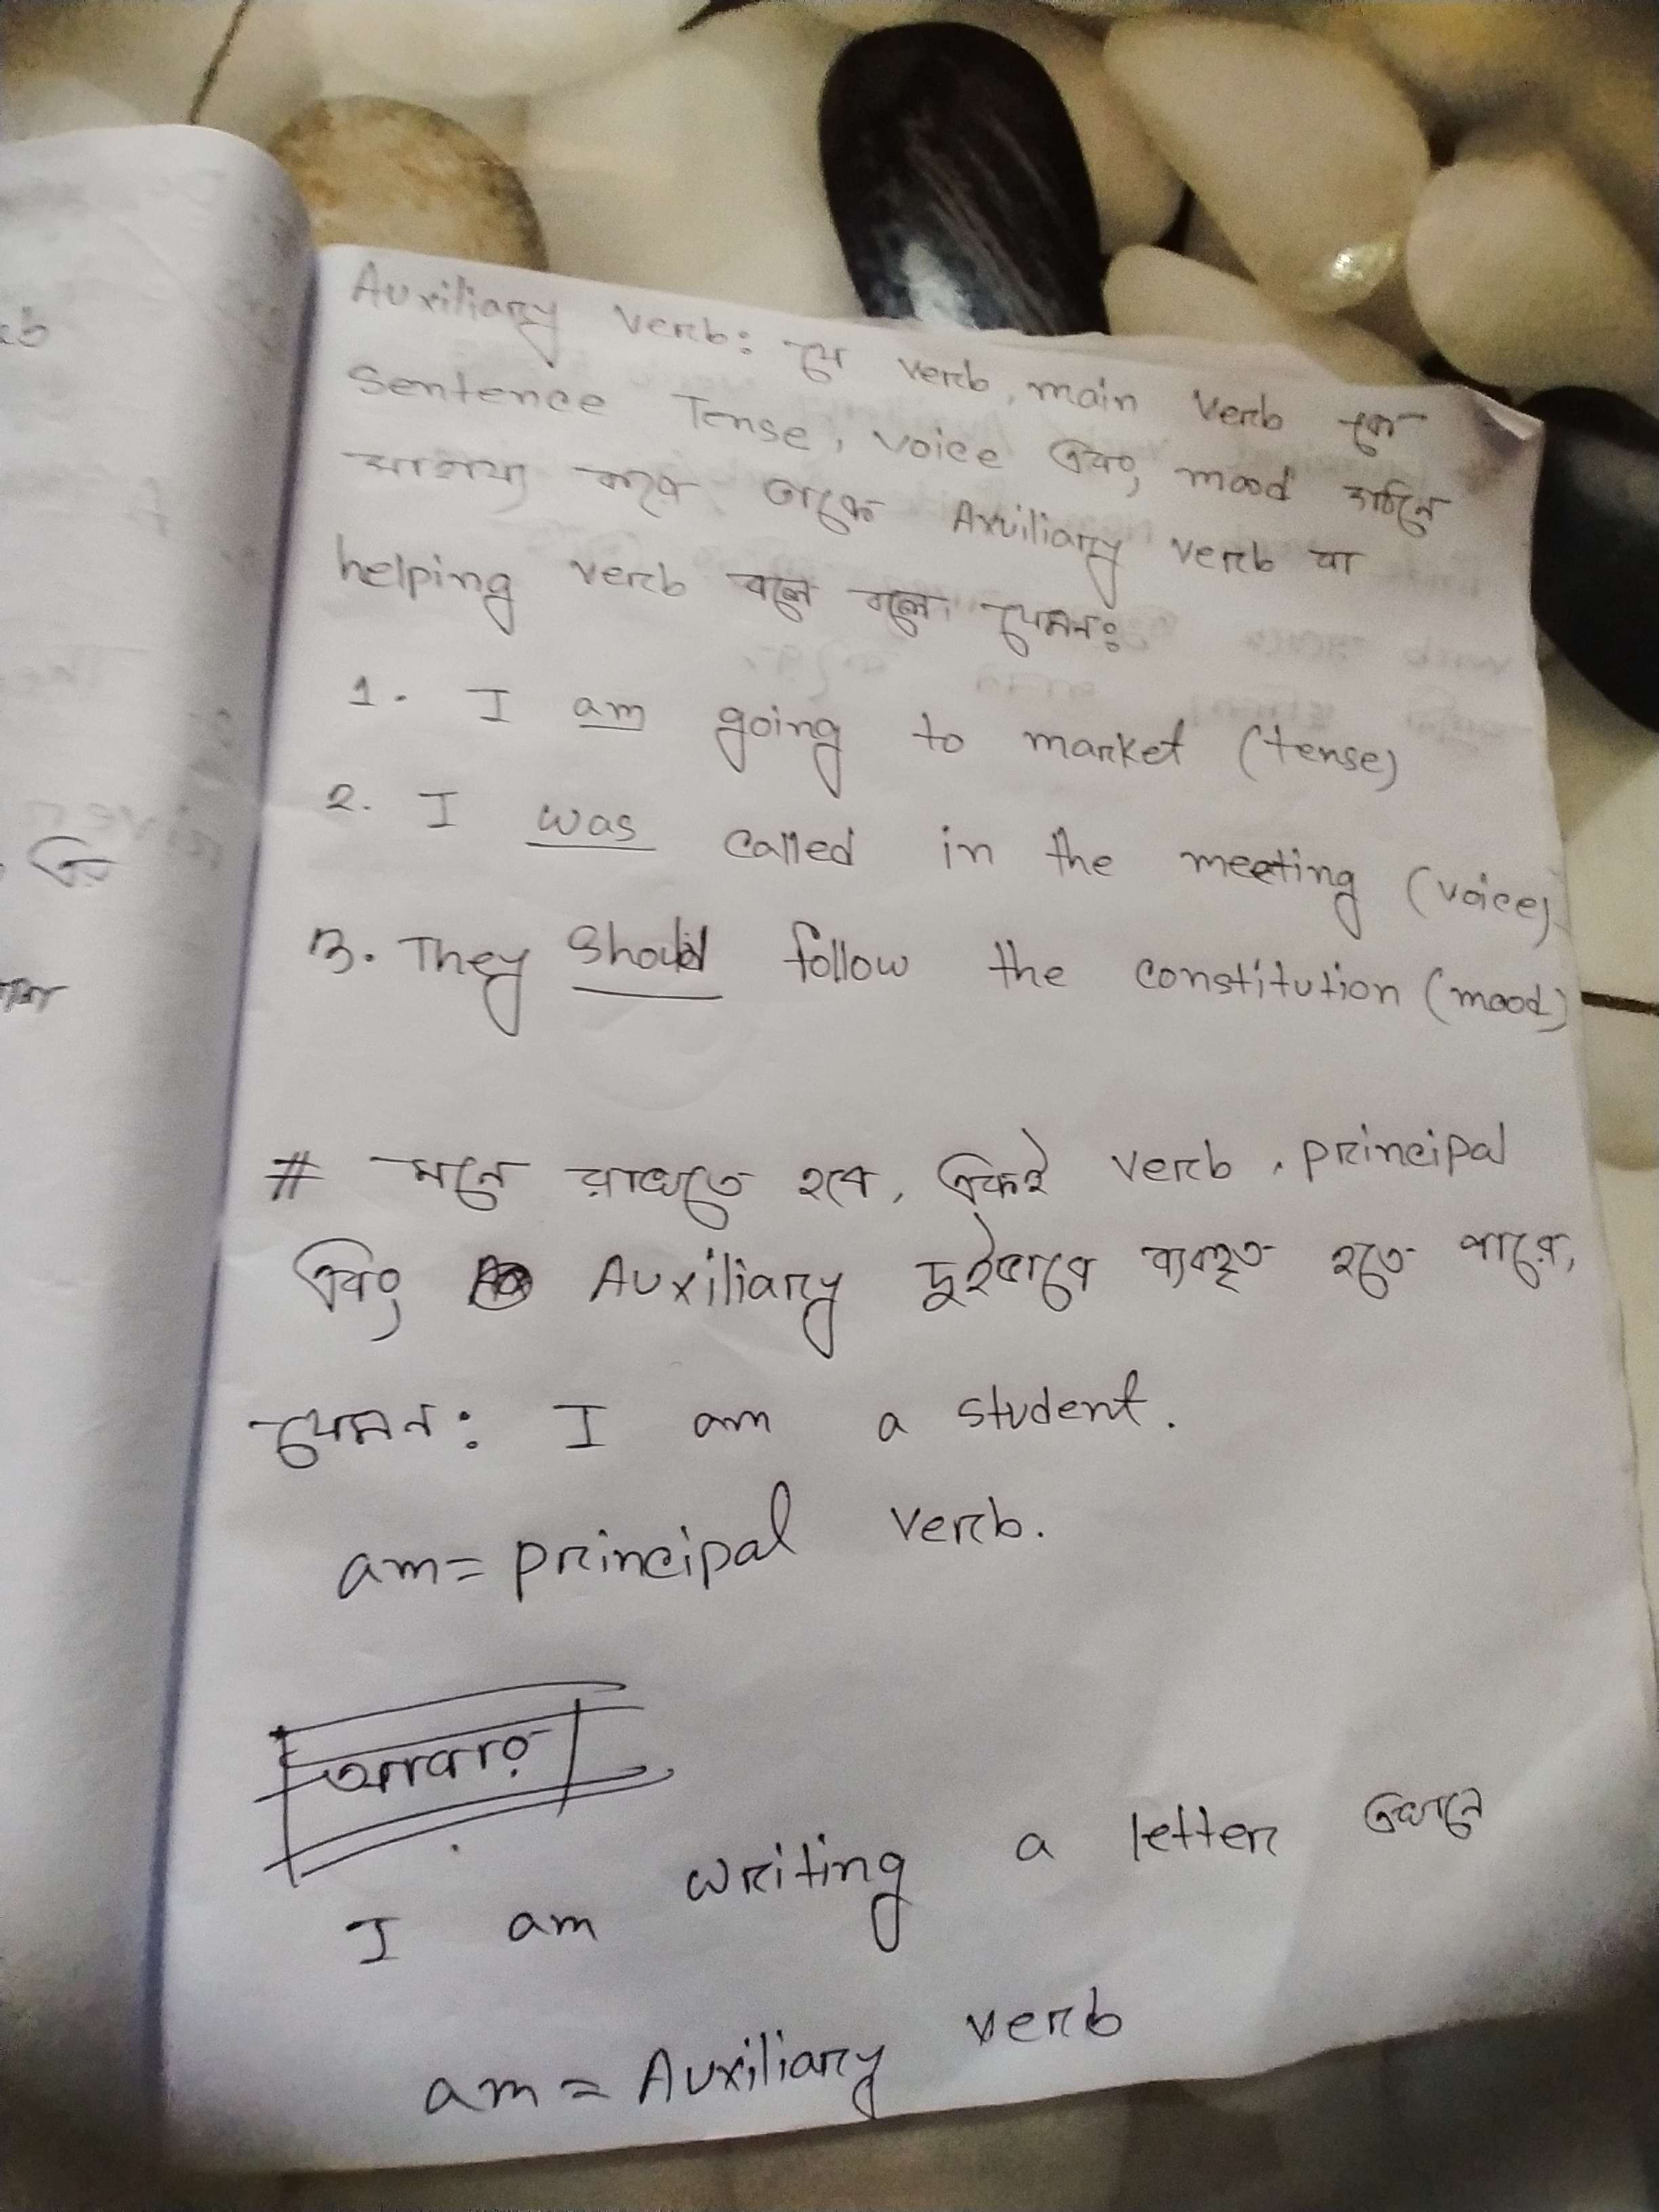 Auxiliary verb: যে verb, main verb কে
Sentence Tense, voice এবং mood গঠনে
সাহায্য করে তাকে Auxiliary verb বা
helping verb বলে বলে। যেমনঃ
1. I am going to market (tense)
2. I was called in the meeting (voice)
3. They should follow the constitution (mood)
# মনে রাখতে হবে, একই verb, principal
এবং Auxiliary দুইভাবে ব্যবহৃত হতে পারে,
যেমন: I am a student.
am = principal verb.
আবার
I am writing a letter এখানে
am = Auxiliary verb